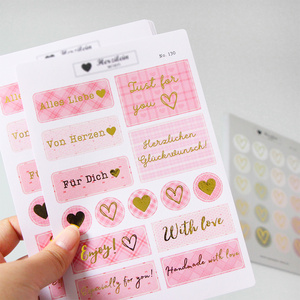 Herzilein
No. 130
Alles Liebe
Just for
you
Von Herzen
Herzlichen
Glückwunsch!
Für Dich
Enjoy!
With love
Especially for you!
Handmade with love